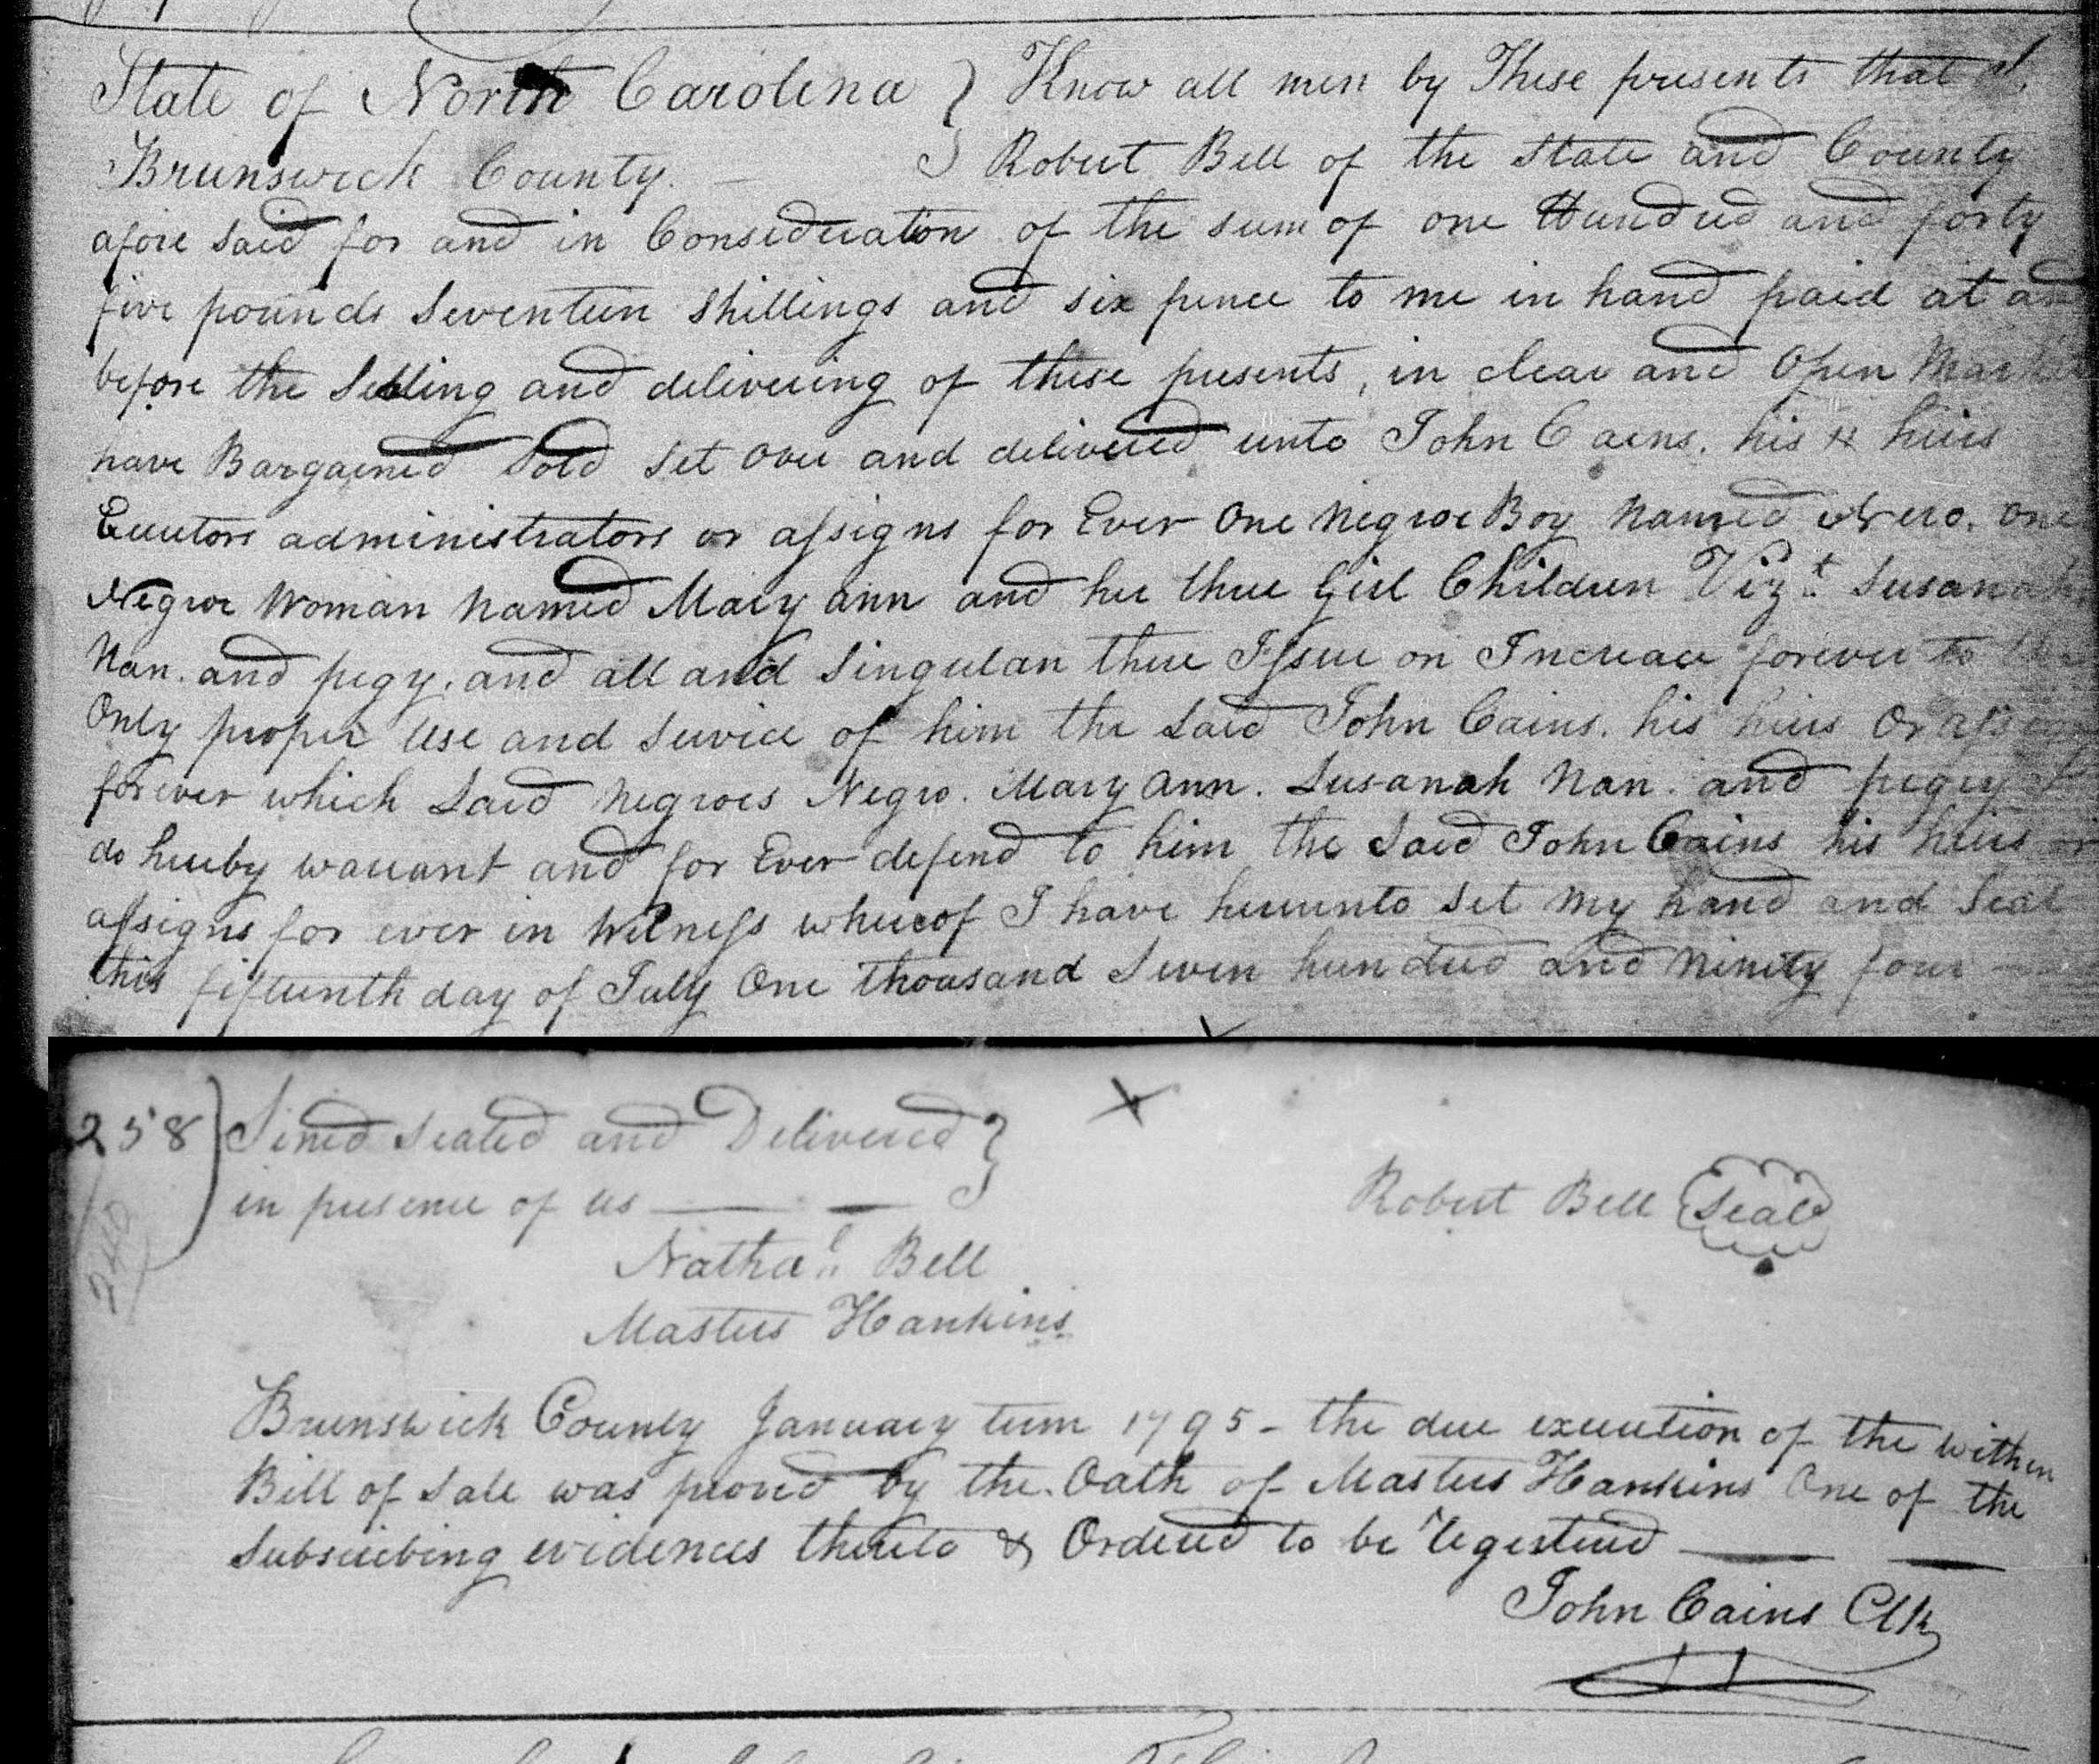 State of North Carolina } Know all men by These presents that I.
Brunswick County. — } Robert Bell of the State and County
afore said for and in Consideration of the sum of one Hundred and forty
five pounds Seventeen Shillings and six pence to me in hand paid at an
before the Selling and delivering of these presents, in clear and Open Market
have Bargained Sold Set over and delivered unto John Cains. his heirs
Exutors administrators or assigns for Ever One Negroe Boy Named Nero. One
Negroe Woman Named Mary ann and her three Girl Children Vizt. Susanah
Nan. and pegy. and all and Singular there Issue on Increace forever to the
Only proper Use and Service of him the Said John Cains. his heirs Or assigns
forever which Said Negroes Negro. Mary Ann. Susanah Nan. and pegey
do hereby warrant and for Ever defend to him the Said John Cains his heirs or
assigns for ever in Witness whereof I have hereunto Set My hand and Seal
this fifteenth day of July One thousand Seven hundred and Ninety four
258 ) Sined Sealed and Delivered }
in presence of us — — }
Robert Bell Seal
Nathal. Bell
Masters Hankins
Brunswick County January term 1795 - the due execution of the within
Bill of Sale was proved by the Oath of Masters Hankins One of the
Subscribing evidences thereto & Ordered to be regestered —
John Cains Clk